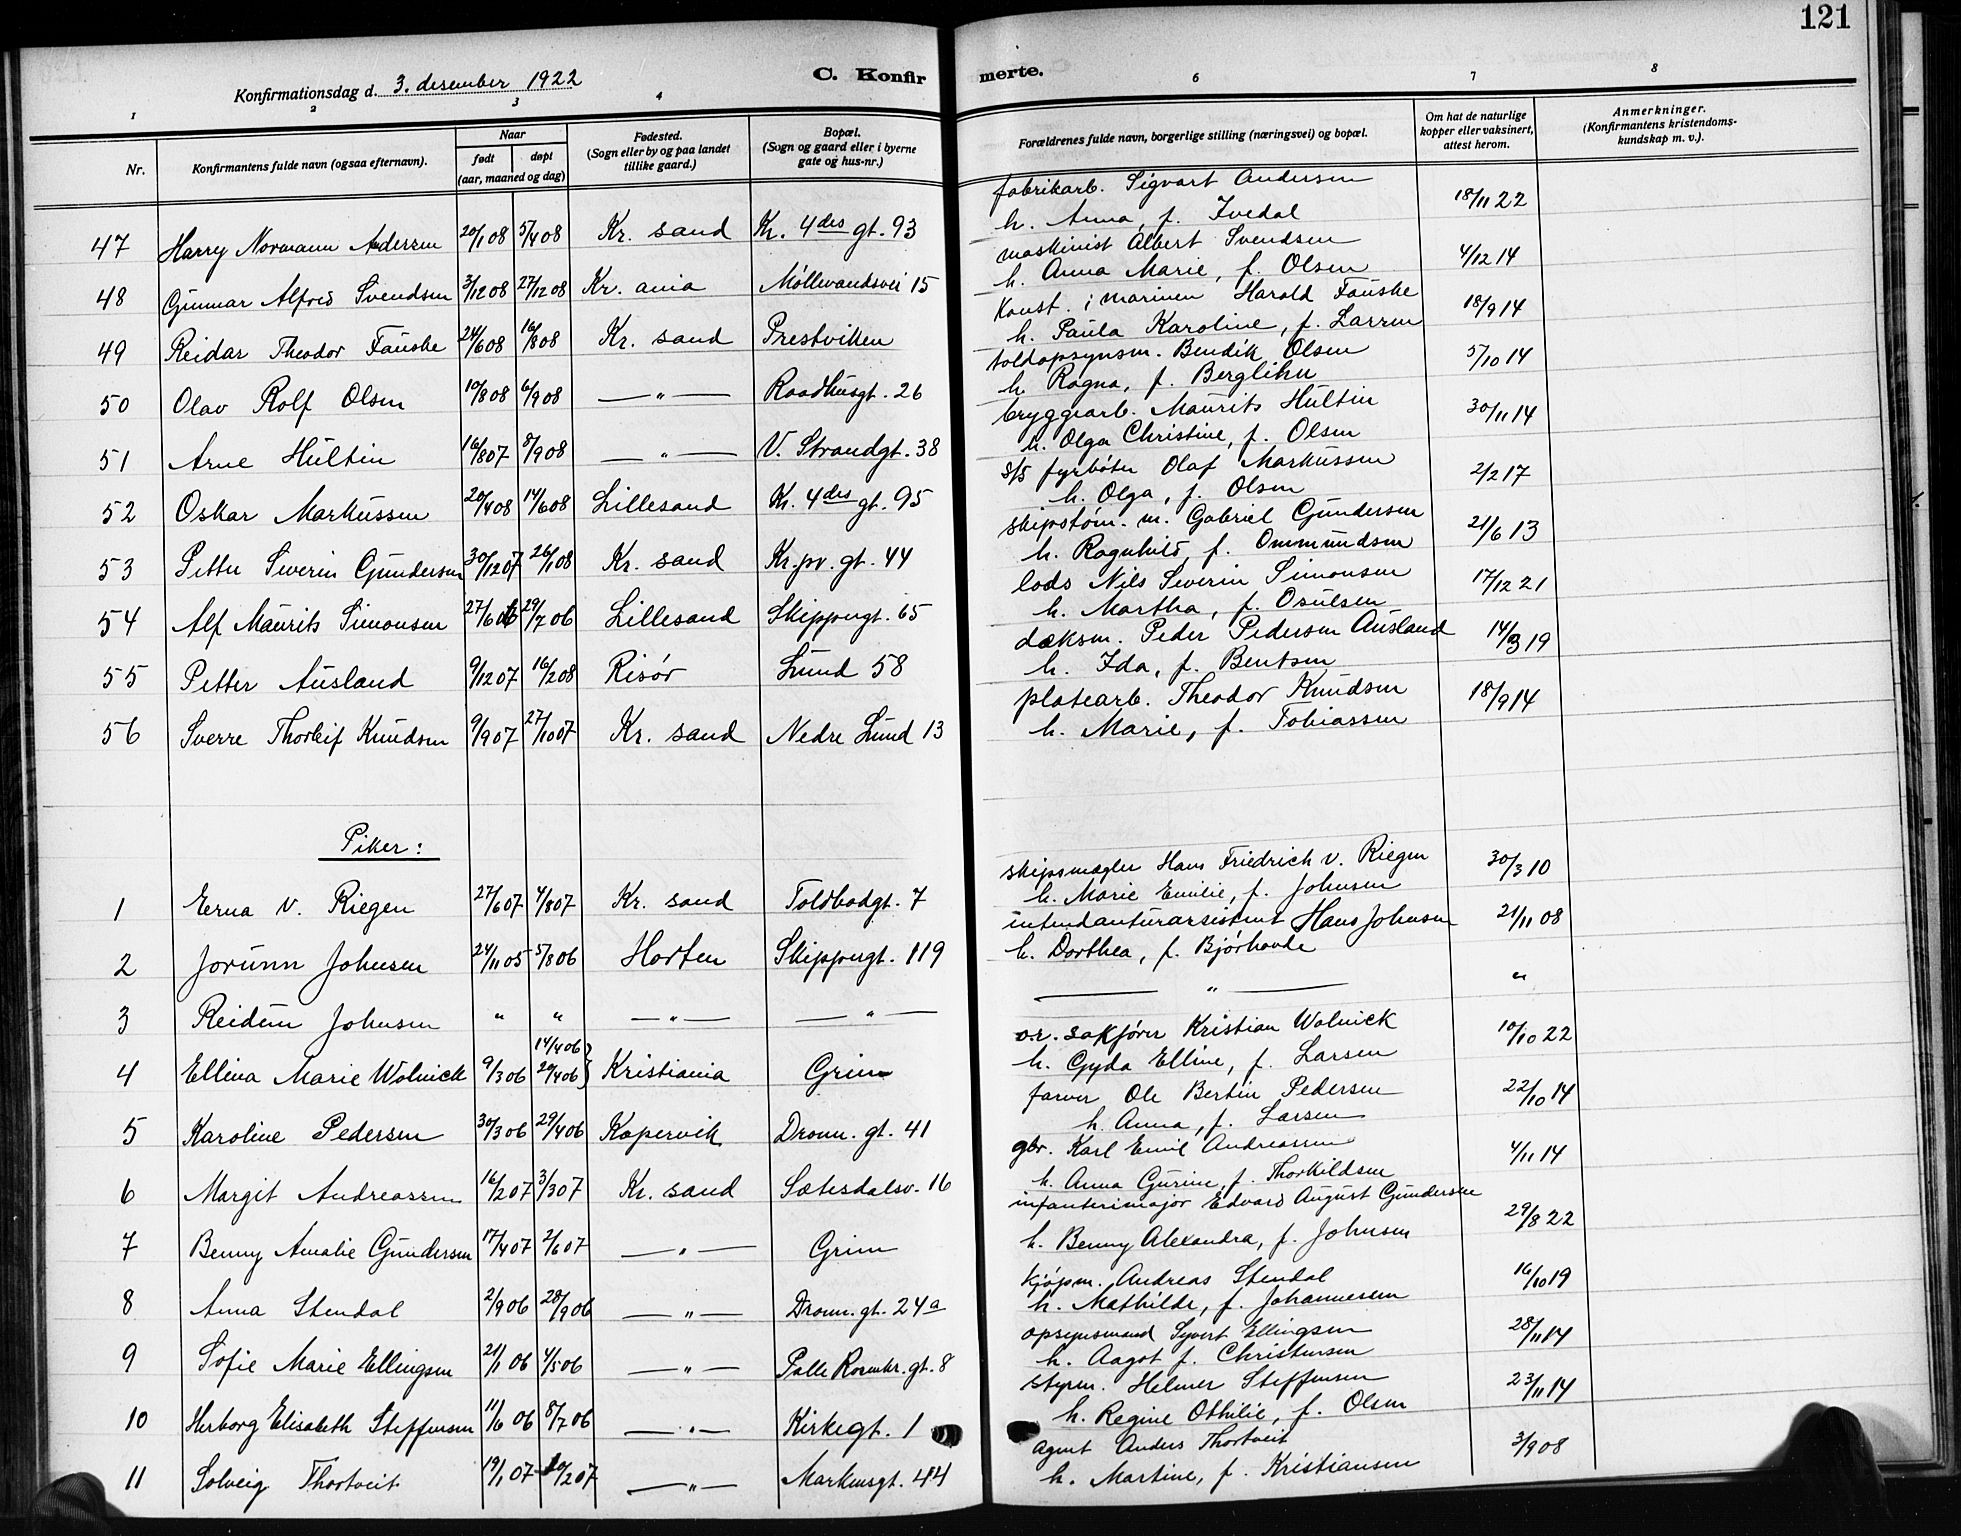 121
Konfirmationsdag d. 3. desember 1922
C. Konfirmerte.
1 2 3 4 6 7 8
Nr.
Konfirmantens fulde navn (ogsaa efternavn).
Naar
født døpt
(aar, maaned og dag)
Fødested.
(Sogn eller by og paa landet
tillike gaard.)
Bopæl.
(Sogn og gaard eller i byerne
gate og hus-nr.)
Forældrenes fulde navn, borgerlige stilling (næringsvei) og bopæl.
Om hat de naturlige
kopper eller vaksinert,
attest herom.
Anmerkninger.
(Konfirmantens kristendoms-
kundskap m. v.).
fabrikarb. Sigvart Andersen 18/11 22
47 Harry Normann Andersen 20/1 08 5/4 08 Kr. sand Kr. 4des gt. 93 h. Anna, f. Ivedal
maskinist Albert Svendsen 4/12 14
48 Gunnar Alfred Svendsen 3/12 08 27/12 08 Kr. ania Møllevandsvei 15 h. Anna Marie, f. Olsen
Konst. i marinen Harald Fauske 18/9 14
49 Reidar Theodor Fauske 24/6 08 16/8 08 Kr. sand Prestvikken h. Paula Karoline, f. Larsen
toldopsynsm. Bendik Olsen 5/10 14
50 Olav Rolf Olsen 10/8 08 6/9 08 — " — Raadhusgt. 26 h. Ragna, f. Berglihn
bryggearb. Maurits Hultin 30/11 14
51 Arne Hultin 16/8 07 8/9 08 — " — V. Strandgt. 38 h. Olga Christine, f. Olsen
s/s fyrbøter Olaf Markussen 2/2 17
52 Oskar Markussen 20/4 08 14/6 08 Lillesand Kr. 4des gt. 95 h. Olga, f. Olsen
skipstøm. m. Gabriel Gundersen 21/6 13
53 Petter Severin Gundersen 30/12 07 26/1 08 Kr. sand Kr. pr. gt. 44 h. Ragnhild, f. Ommundsen
lods Nils Severin Simonsen 17/12 21
54 Alf Maurits Simonsen 27/6 06 29/7 06 Lillesand Skippergt. 65 h. Martha, f. Osulsen
dæksm. Peder Pedersen Ausland 14/3 19
55 Petter Ausland 9/12 07 16/2 08 Risør Lund 58 h. Ida, f. Bentsen
platearb. Theodor Knudsen 18/9 14
56 Sverre Thorleif Knudsen 9/9 07 27/10 07 Kr. sand Nedre Lund 13 h. Marie, f. Tobiassen
Piker:
skipsmægler Hans Friedrich v. Riegen 30/3 10
1 Erna v. Riegen 27/6 07 4/8 07 Kr. sand Toldbodgt. 7 h. Marie Emilie, f. Johnsen
intendanturassistent Hans Johnsen 21/11 08
2 Jorunn Johnsen 24/11 05 5/8 06 Horten Skippergt. 119 h. Dorthea, f. Bjørhovde
3 Reidun Johnsen " " — " — — " — — " — "
or. sakfører Kristian Wolnick 10/10 22
14/4 06
4 Ellina Marie Wolnick 9/3 06 29/4 06 } Kristiania Grim h. Gyda Elline, f. Larsen
farver Ole Bertin Pedersen 22/10 14
5 Karoline Pedersen 30/3 06 29/4 06 Kopervik Dronn. gt. 41 h. Anna, f. Larsen
gbr. Karl Emil Andreassen 4/11 14
6 Margit Andreassen 16/2 07 3/3 07 Kr. sand Sætesdalsv. 16 h. Anna Gurine, f. Thorkildsen
infanterimajor Edvard August Gundersen 29/8 22
7 Benny Amalie Gundersen 17/4 07 2/6 07 — " — Grim h. Benny Alexandra, f. Johnsen
kjøpm. Andreas Stendal 16/10 19
8 Anna Stendal 2/9 06 28/9 06 — " — Dronn. gt. 24a h. Mathilde, f. Johannesen
opsynsmand Syvert Ellingsen 28/11 14
9 Sofie Marie Ellingsen 21/1 06 4/5 06 — " — Palle Rosenkr. gt. 8 h. Aagot f. Christensen
styrm. Helmer Steffensen 23/11 14
10 Herborg Elisabeth Steffensen 11/6 06 8/7 06 — " — Kirkegt. 1 h. Regine Othilie, f. Olsen
agent Anders Thortveit 3/9 08
11 Solveig Thortveit 19/1 07 20/2 07 — " — Markensgt. 44 h. Martine, f. Kristiansen